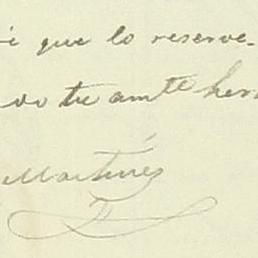 é que lo reserve-
do tu amte her
Martínes